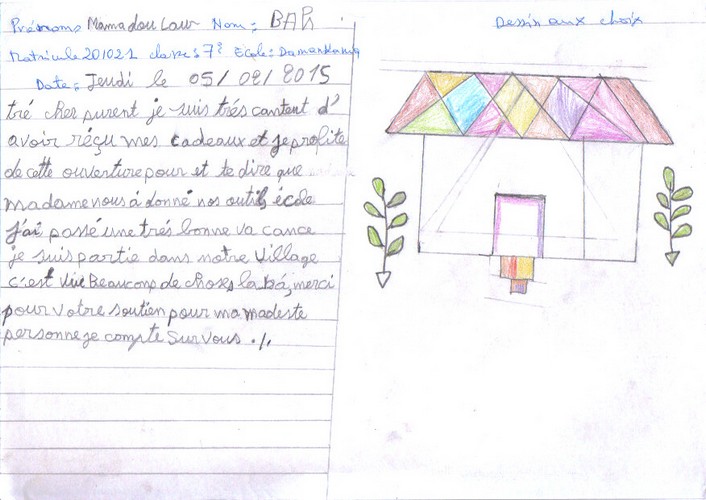 Prénoms Mamadou Lour Nom: BAH
Matricule 201021 classe: 7e Ecole: Damankanya
Date: Jeudi le 05/02/2015
tré cher purent je suis trés cantent d'
avoir réçu mes cadeaux et je profite
de cette ouverture pour et te dire que
madame nous à donné nos outils école
j'ai passé une trés bonne va cance
je suis partie dans notre village
c'est vue Beaucoup de choses la bá, merci
pour votre soutien pour ma madeste
personne je compte sur vous ./.
Dessin aux choix